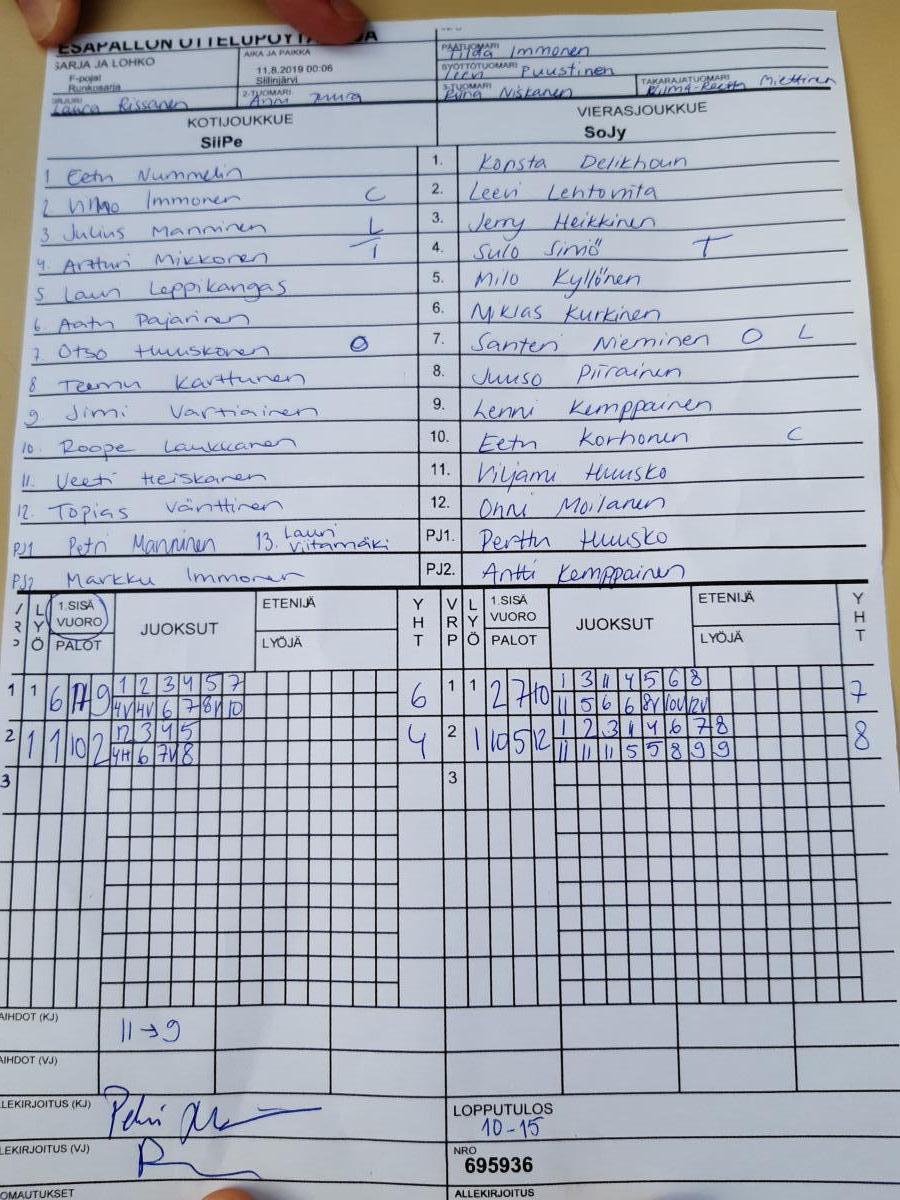 ESAPALLON OTTELUPÖYTÄ
SARJA JA LOHKO
F-pojat
Runkosarja
AIKA JA PAIKKA
11.8.2019 00:06
Siilinjärvi
PÄÄTUOMARI
Tilda Immonen
SYÖTTÖTUOMARI
Leevi Puustinen
Laura Rissanen
2-TUOMARI
Anni
3-TUOMARI
Niskanen
TAKARAJATUOMARI
Miettinen
KOTIJOUKKUE
SiiPe
VIERASJOUKKUE
SoJy
1 Eetu Nummelin
1. Konsta Delikhoun
2 Vilho Immonen C
2. Leevi Lehtovirta
3 Julius Manninen L
3. Jerry Heikkinen
4. Artturi Mikkonen T
4. Sulo Simiö T
5 Lauri Leppikangas
5. Milo Kyllönen
6. Aatu Pajarinen
6. Niklas Kurkinen
7. Otso Huuskonen O
7. Santeri Nieminen O L
8 Teemu Karttunen
8. Juuso Piirainen
9 Jimi Vartiainen
9. Lenni Kemppainen
10. Roope Laukkanen
10. Eetu Korhonen C
11. Veeti Heiskanen
11. Viljami Huusko
12. Topias Vänttinen
12. Onni Moilanen
PJ1 Petri Manninen 13. Lauri Viitamäki
PJ1. Perttu Huusko
PJ2 Markku Immonen
PJ2. Antti Kemppainen
LYÖ
1.SISÄ VUORO
PALOT
JUOKSUT
ETENIJÄ
LYÖJÄ
YHT
VRP
LYÖ
1.SISÄ VUORO
PALOT
JUOKSUT
ETENIJÄ
LYÖJÄ
YHT
1 1 6 9 1 2 3 4 5 7 6
4V 4V 6 7 8V 10
1 1 2 7 10 1 3 11 4 5 6 8 7
11 5 6 6 8V 10V 12V
2 1 1 10 2 12 3 4 5 4
4H 6 7V 8
2 1 10 5 12 1 2 3 11 4 6 7 8 8
11 11 11 5 5 8 9 9
3
3
AIHDOT (KJ)
11→9
AIHDOT (VJ)
LEKIRJOITUS (KJ)
Petri
LOPPUTULOS
10-15
LEKIRJOITUS (VJ)
NRO
695936
OMAUTUKSET
ALLEKIRJOITUS